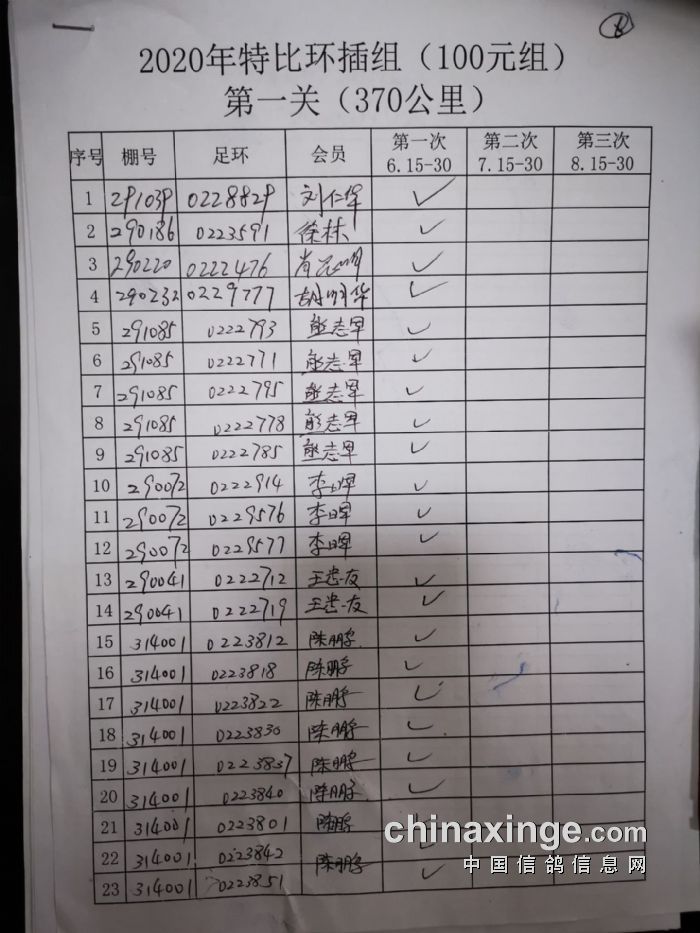 2020年特比环插组（100元组）
第一关（370公里）
序号 棚号 足环 会员 第一次 6.15-30 第二次 7.15-30 第三次 8.15-30
1 291039 0228829 刘仁华 ✓
2 290186 0223591 徐林 ✓
3 290220 0222476 肖 明 ✓
4 290232 0229777 胡明华 ✓
5 291085 0222793 熊志军 ✓
6 291085 0222771 熊志军 ✓
7 291085 0222795 熊志军 ✓
8 291085 0222778 熊志军 ✓
9 291085 0222785 熊志军 ✓
10 290072 0222914 李晖 ✓
11 290072 0229576 李晖 ✓
12 290072 0229577 李晖 ✓
13 290041 0222712 王忠友 ✓
14 290041 0222719 王忠友 ✓
15 314001 0223812 陈鹏 ✓
16 314001 0223818 陈鹏 ✓
17 314001 0223822 陈鹏 ✓
18 314001 0223830 陈鹏 ✓
19 314001 0223837 陈鹏 ✓
20 314001 0223840 陈鹏 ✓
21 314001 0223801 陈鹏
22 314001 0223842 陈鹏 ✓
23 314001 0223851 ✓
chinaxinge.com
中国信鸽信息网